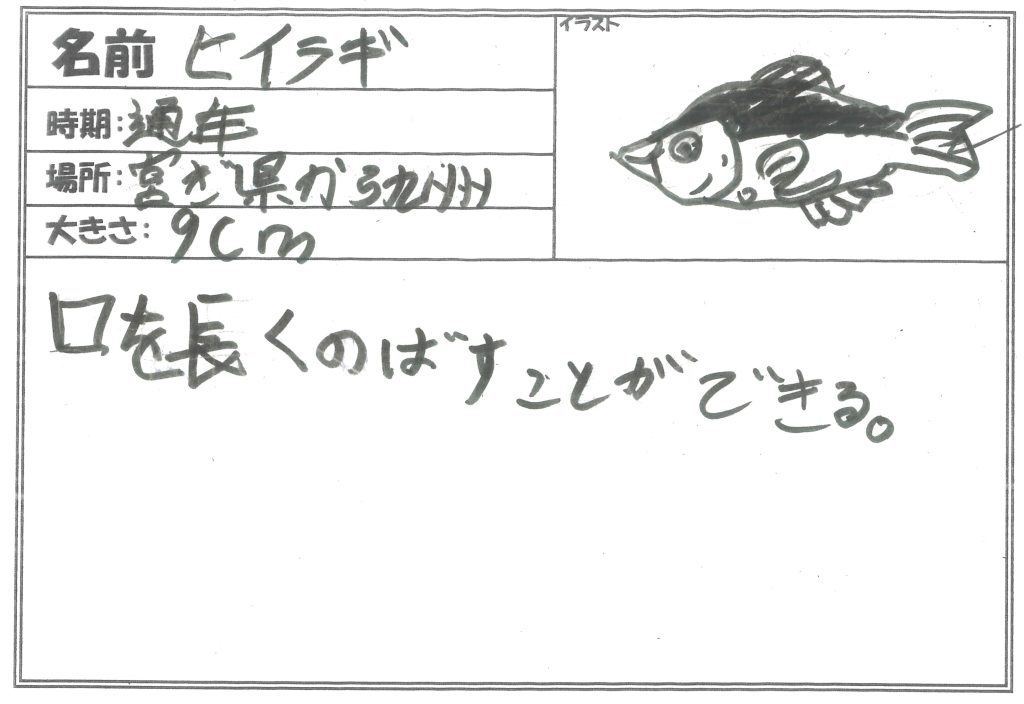 名前 ヒイラギ
イラスト
時期:通年
場所:宮ぎ県から九州
大きさ:9cm
口を長くのばすことができる。